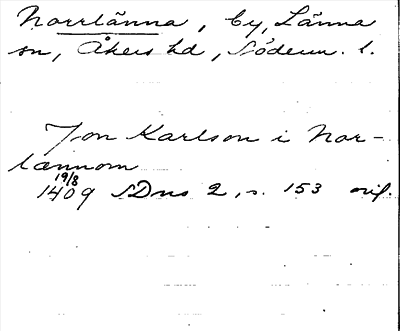 Norrlänna, by, Länna
sn, Åkers hd, Söderm. l.
Jon Karlson i Nor-
lænnom
19/8
1409 SDns 2, s. 153 orig.